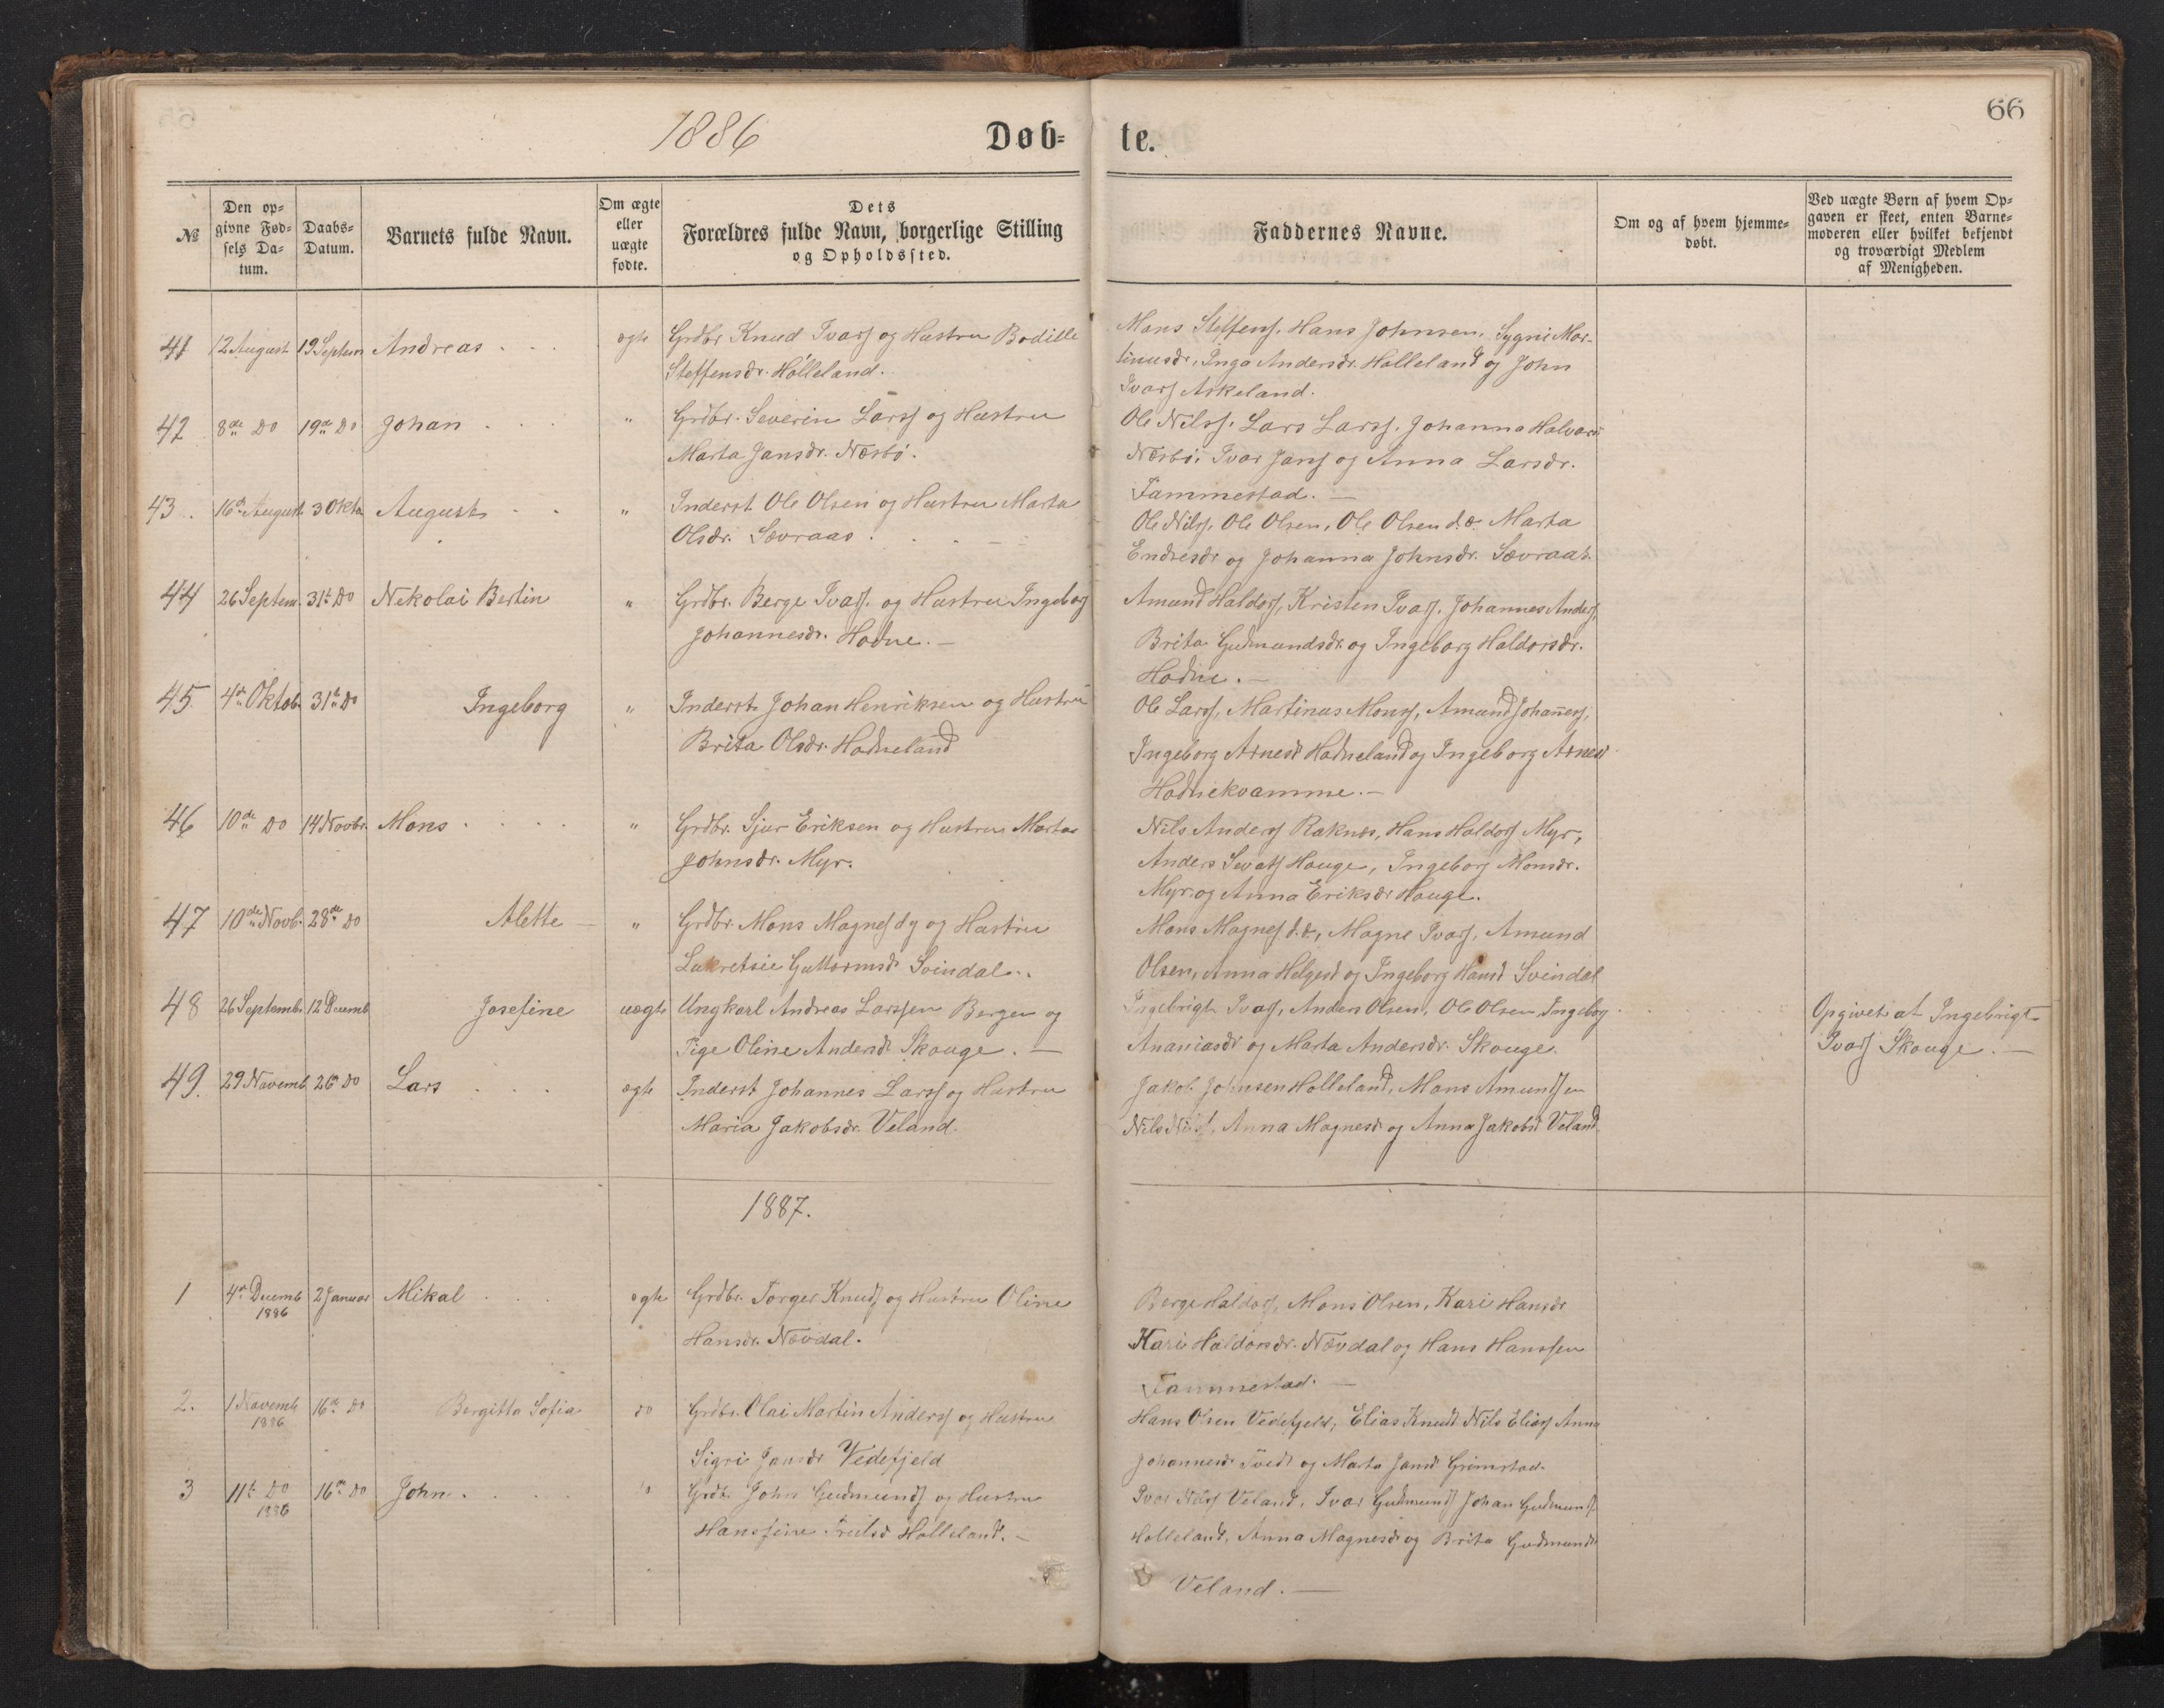 66
1886 Døb= te.
№
Den op=
givne Fød=
sels Da=
tum.
Daabs=
Datum.
Barnets fulde Navn.
Om ægte
eller
uægte
fødte.
Dets
Forældres fulde Navn, borgerlige Stilling
og Opholdssted.
Faddernes Navne.
Om og af hvem hjemme=
døbt.
Ved uægte Børn af hvem Op=
gaven er skeet, enten Barne=
moderen eller hvilket bekjendt
og troværdigt Medlem
af Menigheden.
41 12 August 19 Septem Andreas ægte Grdbr. Knud Ivars og Hustru Bodille
Steffensdr. Hølleland.
Mons Steffens. Hans Johnsen, Sygni Mar-
tinusdr, Inga Andersdr. Hølleland og John
Ivars Askeland.
42 8de Do 19de Do Johan " Grdbr. Severin Larss og Hustru
Marta Jansdr. Næsbø.
Ole Nilss. Lars Larss. Johanna Halvors
Næsbø, Ivar Jans og Anna Larsdr.
Tammestad. —
43. 16de August 3 Oktb August " Inderst Ole Olsen og Hustru Marta
Olsdr. Sævraas
Ole Nilss. Ole Olsen, Ole Olsen d.æ. Marta
Endresdr og Johanna Johnsdr. Sævraas.
44 26 Septem. 31te Do Nikolai Bertin " Grdbr. Berge Ivars. og Hustru Ingeborg
Johannesdr. Hodne. —
Amund Haldors, Kristen Ivars. Johannes Anders,
Brita Gudmundsdr. og Ingeborg Haldorsdr.
Hodne. —
45. 4de Oktob. 31te Do Ingeborg " Inderst Johan Henriksen og Hustru
Brita Olsdr. Hodneland
Ole Larss, Martinus Monss, Amund Johaness,
Ingeborg Arnesd Hodneland og Ingeborg Arnesd
Hodnekvamme. —
46 10de Do 14 Novbr. Mons " Grdbr. Sjur Eriksen og Hustru Marta
Johnsdr. Myr.
Nils Anders Raknes, Hans Haldors Myr,
Anders Hauge, Ingeborg Monsdr.
Myr. og Anna Eriksdr Hauge.
47 10de Novb. 28de Do Alette " Grdbr. Mons Magnes dy og Hustru
Lukretsie Guttormsd Svindal.
Mons Magnes d.æ., Magne Ivars, Amund
Olsen, Anna Helgesd og Ingeborg Hansd Svindal
48 26 Septembr. 12 Decemb Josefine uægte Ungkarl Andreas Larssen Bergen og
Pige Oline Andersd. Skouge. —
Ingebrigt Ivars, Anders Olsen, Ole Olsen, Ingeborg
Ananiasdr og Marta Andersdr. Skouge.
Opgivet at Ingebrigt
Ivars Skouge. —
49. 29 Novemb. 26de Do Lars ægte Inderst Johannes Larss og Hustru
Maria Jakobsdr. Veland.
Jakob Johnsen Hølleland, Mons Amundsen
Nils Nilss, Anna Magnesd og Anna Jakobsd Veland
1887.
1 4de Decemb 1886 2 Januar Mikal ægte Grdbr. Torger Knuds og Hustru Oline
Hansdr. Nævdal.
Berge Haldors, Mons Olsen, Kari Hansdr
Kari Haldorsdr. Nævdal og Hans Hanssen
Tammestad. —
2. 1 Novemb 1886 16de Do Bergitta Sofia do Grdbr. Olai Martin Anders og Hustru
Sigri Jansdr Vedefjeld
Hans Olsen Vedefjeld, Elias Knuds Nils Elias Anna
Johannesdr Tvedt og Marta Jansd Grimstad.
3 11te Do 1886 16de Do John do Grdbr. John Gudmunds og Hustru
Hansine Hølleland. —
Ivar Nilss Veland, Ivar Gudmunds Johan Gudmunds.
Hølleland, Anna Magnesdr og Brita Gudmundsd
Veland. —